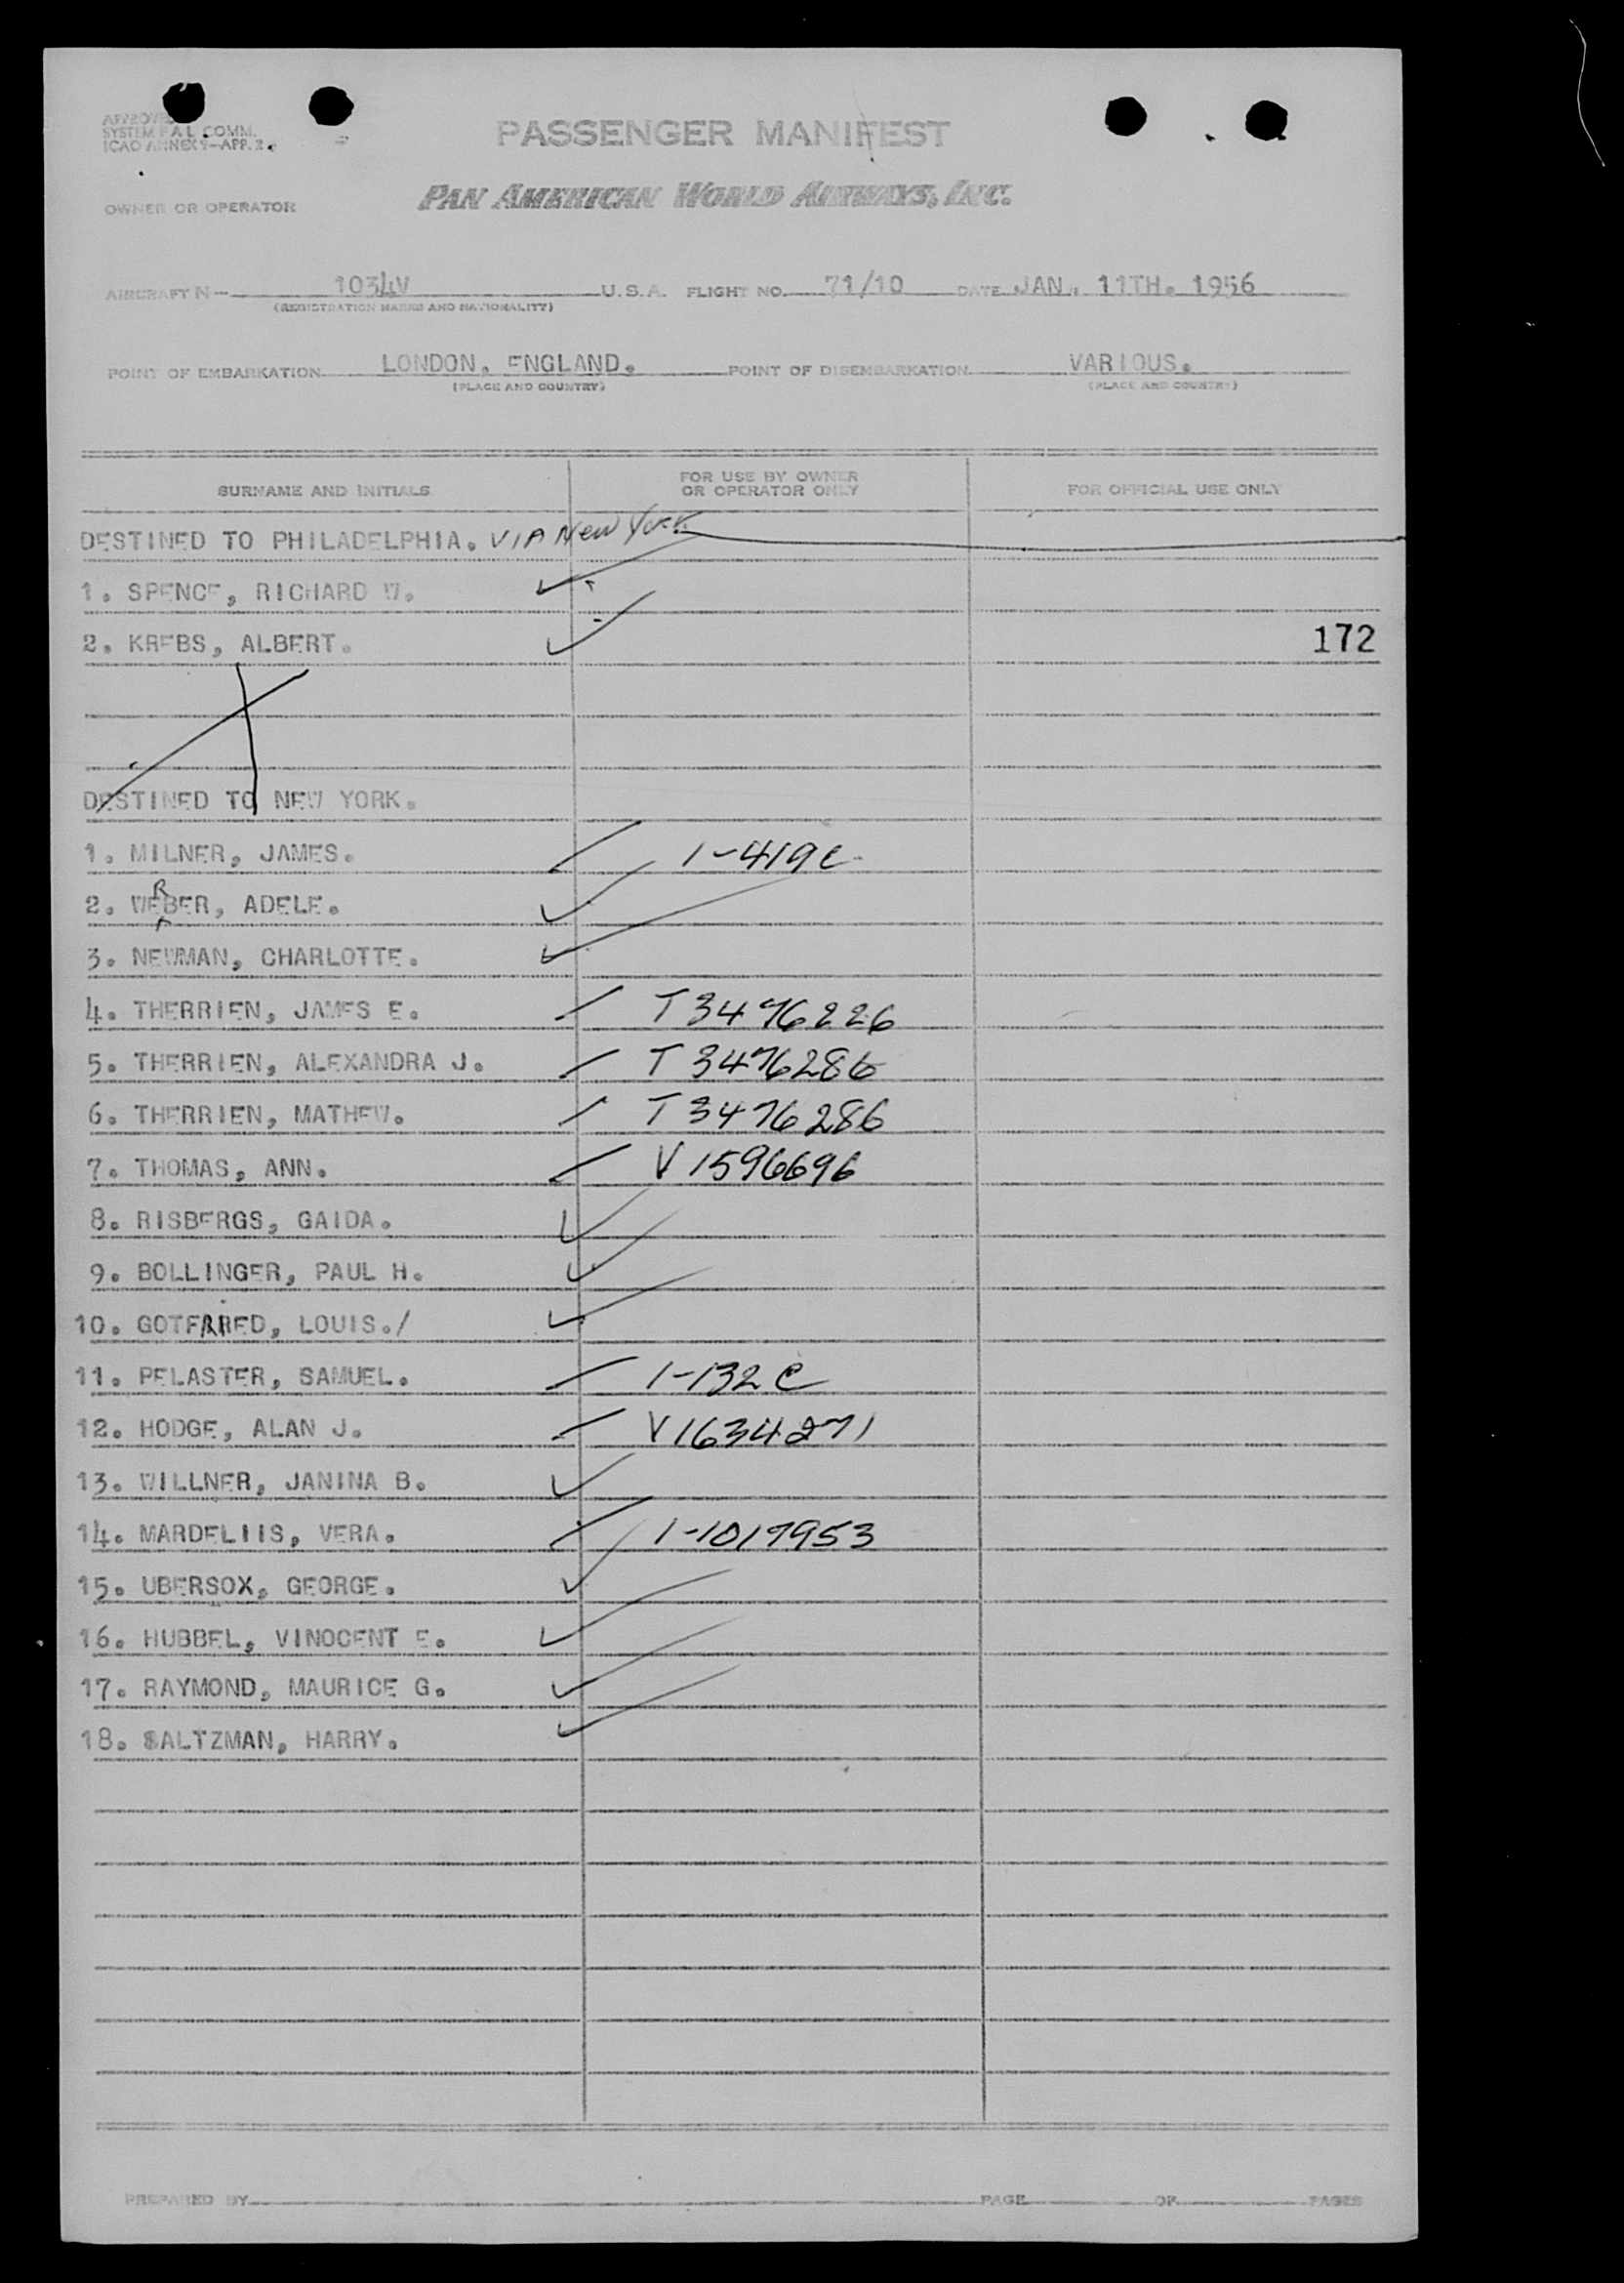 APPROVED
SYSTEM F.A.L. COMM.
ICAO ANNEX 9-APP. 2
PASSENGER MANIFEST
OWNER OR OPERATOR PAN AMERICAN WORLD AIRWAYS, INC.
AIRCRAFT N- 1034V U.S.A. FLIGHT NO. 71/10 DATE JAN. 11TH. 1956
(REGISTRATION MARKS AND NATIONALITY)
POINT OF EMBARKATION LONDON, ENGLAND. POINT OF DISEMBARKATION VARIOUS.
(PLACE AND COUNTRY) (PLACE AND COUNTRY)
SURNAME AND INITIALS FOR USE BY OWNER OR OPERATOR ONLY FOR OFFICIAL USE ONLY
DESTINED TO PHILADELPHIA. VIA New York
1. SPENCE, RICHARD W.
2. KREBS, ALBERT. 172
DESTINED TO NEW YORK.
1. MILNER, JAMES. 1-419C
2. WERBER, ADELE.
3. NEWMAN, CHARLOTTE.
4. THERRIEN, JAMES E. T 3476226
5. THERRIEN, ALEXANDRA J. T 3476286
6. THERRIEN, MATHEW. T 3476286
7. THOMAS, ANN. V 1596696
8. RISBERGS, GAIDA.
9. BOLLINGER, PAUL H.
10. GOTFRIED, LOUIS./
11. PELASTER, SAMUEL. 1-132 C
12. HODGE, ALAN J. V1634271
13. WILLNER, JANINA B.
14. MARDELIIS, VERA. 1-1017953
15. UBERSOX, GEORGE.
16. HUBBEL, VINOCENT E.
17. RAYMOND, MAURICE G.
18. SALTZMAN, HARRY.
PREPARED BY PAGE OF PAGES